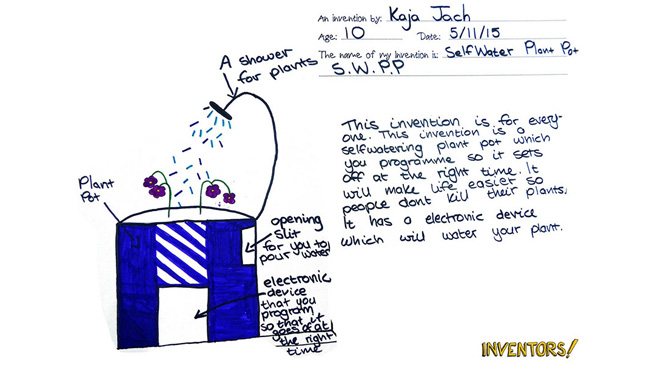 An invention by: Kaja Jach
Age: 10 Date: 5/11/15
The name of my invention is: Self Water Plant Pot
S.W.P.P
A shower
for plants
This invention is for every-
one. This invention is a
selfwatering plant pot which
you programme so it sets
off at the right time. It
will make life easier so
people dont kill their plants.
It has a electronic device
which will water your plant.
Plant
Pot
opening
slit
for you to
pour water
electronic
device
that you
program
so that it
goes of at
the right
time
INVENTORS!